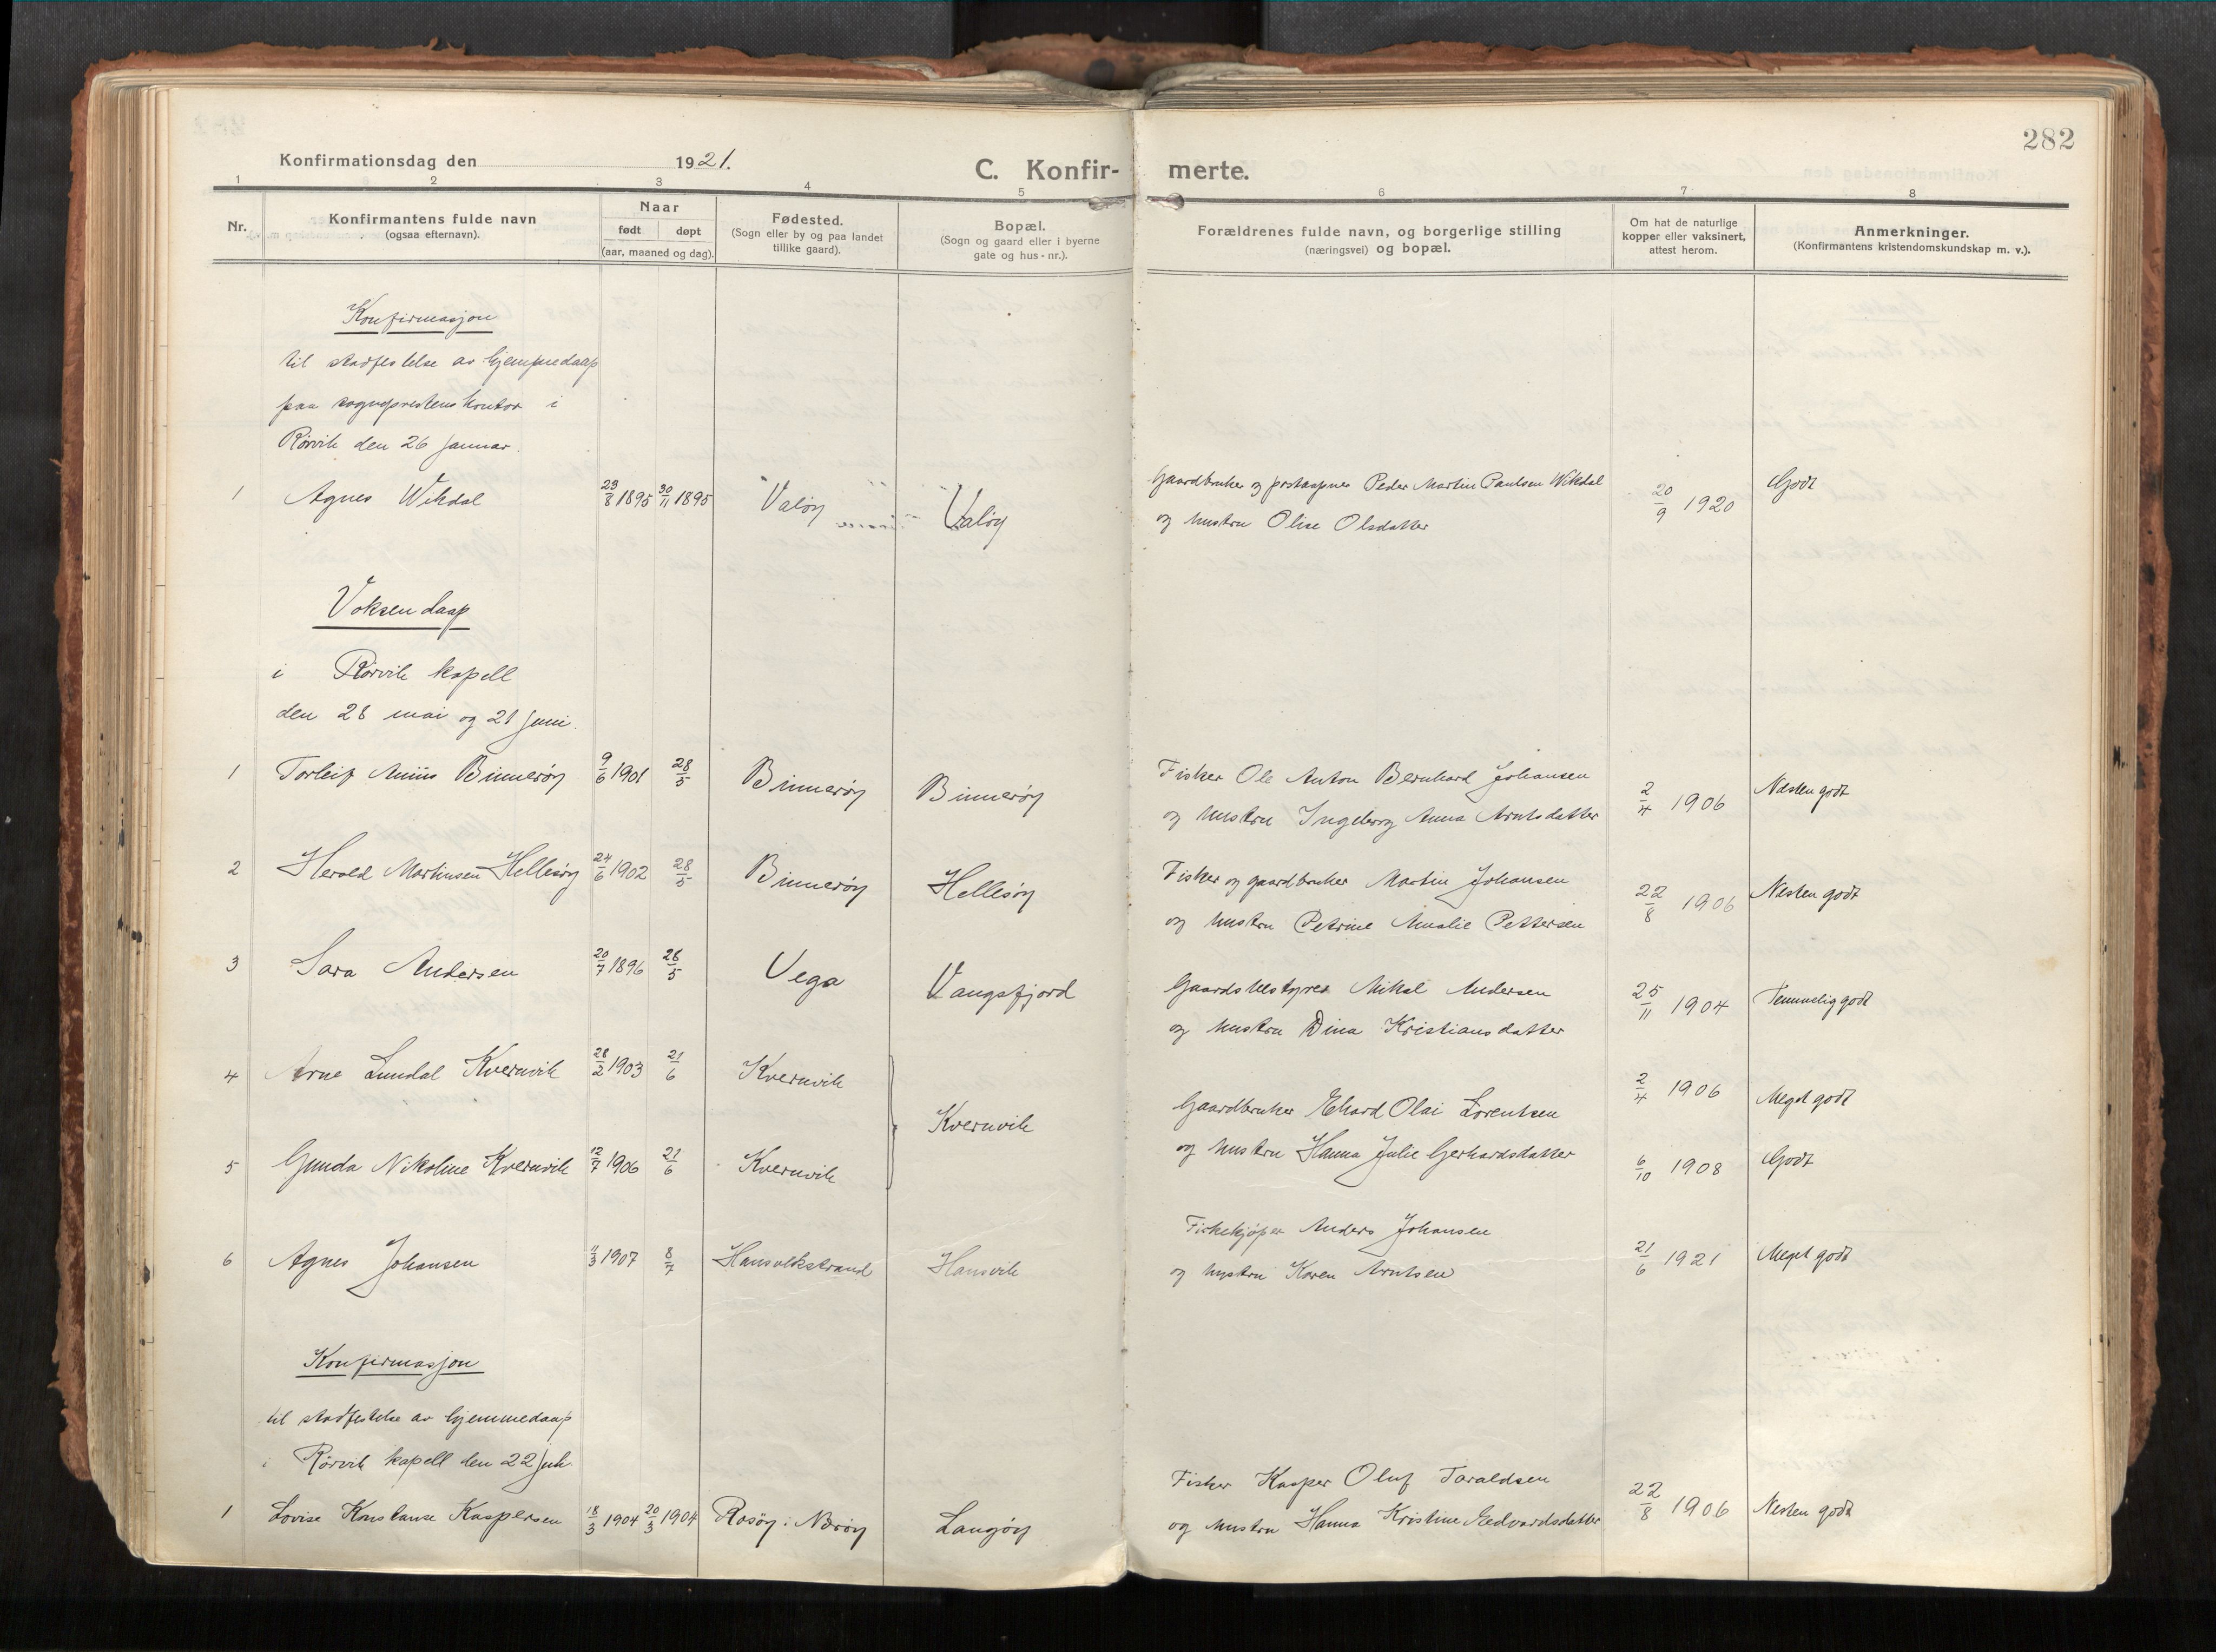 282
Konfirmationsdag den 1921.
C. Konfir- merte.
1 2 3 4 5 6 7 8
Nr.
Konfirmantens fulde navn
(ogsaa efternavn).
Naar
født døpt
(aar, maaned og dag).
Fødested.
(Sogn eller by og paa landet
tillike gaard).
Bopæl.
(Sogn og gaard eller i byerne
gate og hus-nr.).
Forældrenes fulde navn, og borgerlige stilling
(næringsvei) og bopæl.
Om hat de naturlige
kopper eller vaksinert,
attest herom.
Anmerkninger.
(Konfirmantens kristendomskundskap m. v.).
Konfirmasjon
til stadfestelse av hjemmedaap
paa sogneprestens kontor i
Rørvik den 26 januar.
1 Agnes Wikdal 29/8 1895 30/11 1895 Valøy Valøy Gaardbruker og postaapner Peder Martin Paulsen Wikdal 20/9 1920 Godt
og hustru Olise Olsdatter
Voksendaap
i Rørvik kapell
den 28 mai og 21 juni.
1 Torleif Binnerøy 9/6 1901 28/5 Binnerøy Binnerøy Fisker Ole Anton Bernhard Johansen 2/4 1906 Nesten godt
og hustru Ingeborg Anna Arntsdatter
2 Herold Martinsen Hellesøy 24/6 1902 28/5 Binnerøy Hellesøy Fisker og gaardbruker Martin Johansen 22/8 1906 Nesten godt
og hustru Petrine Amalie Pettersen
3 Sara Andersen 20/7 1896 28/5 Vega Vangsfjord Gaardsbestyrer Mikal Andersen 25/11 1904 Temmelig godt
og hustru Dina Kristiansdatter
4 Arne Lundal Kvernvik 28/2 1903 21/6 Kvernvik Kvernvik 2/4 1906 Meget godt
Gaardbruker Ekard Olai Lorentsen
og hustru Hanna Julie Gerhardsdatter
5 Gunda Nikoline Kvernvik 12/7 1906 21/6 Kvernvik 6/10 1908 Godt
6 Agnes Johansen 11/3 1907 8/7 Hansvikstrand Hansvik Fiskekjøper Anders Johansen 21/6 1921 Meget godt
og hustru Karen Arntsen
Konfirmasjon
til stadfestelse av hjemmedaap
i Rørvik kapell den 22 juli
1 Lovise Konstanse Kaspersen 18/3 1904 20/3 1904 Rosøy i Nærøy Langøy Fisker Kasper Oluf Taraldsen 22/8 1906 Nesten godt
og hustru Hanna Kristine Edvardsdatter